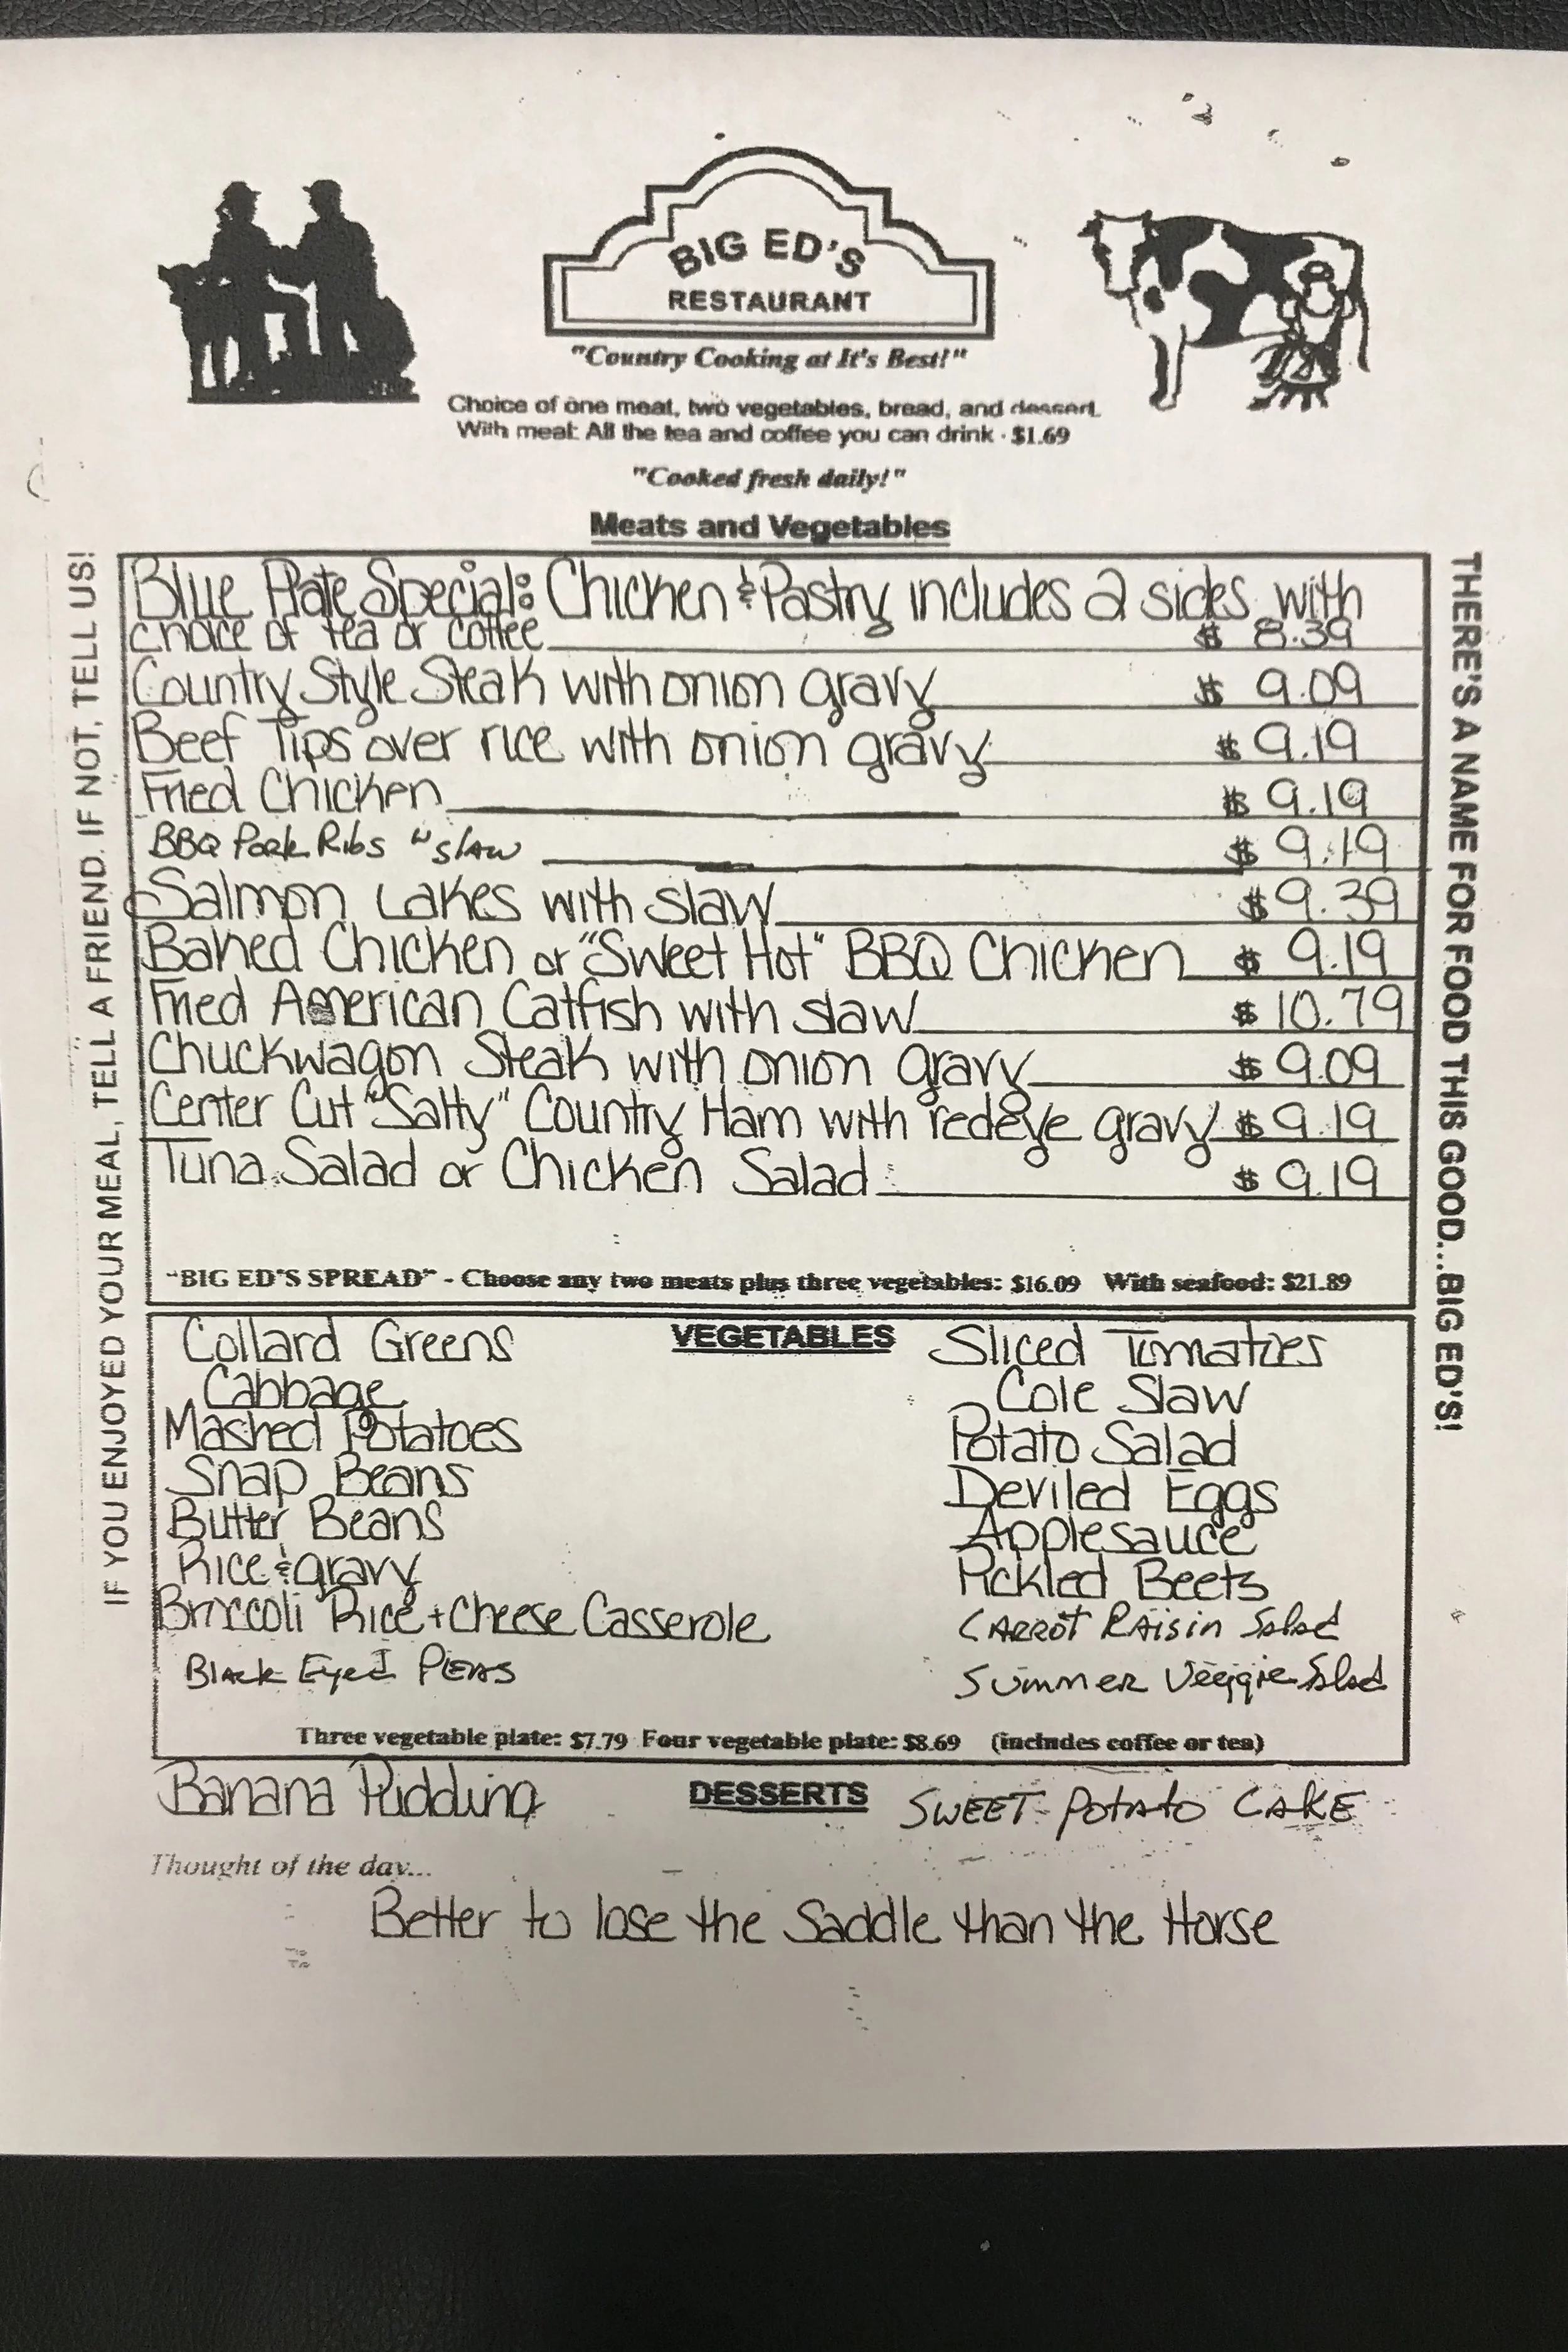 BIG ED'S
RESTAURANT
"Country Cooking at It's Best!"
Choice of one meat, two vegetables, bread, and dessert.
With meal: All the tea and coffee you can drink - $1.69
"Cooked fresh daily!"
Meats and Vegetables
Blue Plate Special: Chicken & Pastry includes 2 sides with
choice of tea or coffee $ 8.39
Country Style Steak with onion gravy $ 9.09
Beef Tips over rice with onion gravy $ 9.19
Fried Chicken $ 9.19
BBQ Pork Ribs w slaw $ 9.19
Salmon Cakes with slaw $ 9.39
Baked Chicken or "Sweet Hot" BBQ Chicken $ 9.19
Fried American Catfish with slaw $ 10.79
Chuckwagon Steak with onion gravy $ 9.09
Center Cut "Salty" Country Ham with redeye gravy $ 9.19
Tuna Salad or Chicken Salad $ 9.19
"BIG ED'S SPREAD" - Choose any two meats plus three vegetables: $16.09 With seafood: $21.89
VEGETABLES
Collard Greens
Cabbage
Mashed Potatoes
Snap Beans
Butter Beans
Rice & gravy
Broccoli Rice + Cheese Casserole
Black Eyed Peas
Sliced Tomatoes
Cole Slaw
Potato Salad
Deviled Eggs
Applesauce
Pickled Beets
Carrot Raisin Salad
Summer Veggie Salad
Three vegetable plate: $7.79 Four vegetable plate: $8.69 (includes coffee or tea)
DESSERTS
Banana Pudding
SWEET POTATO CAKE
Thought of the day...
Better to lose the Saddle than the Horse
IF YOU ENJOYED YOUR MEAL, TELL A FRIEND. IF NOT, TELL US!
THERE'S A NAME FOR FOOD THIS GOOD...BIG ED'S!